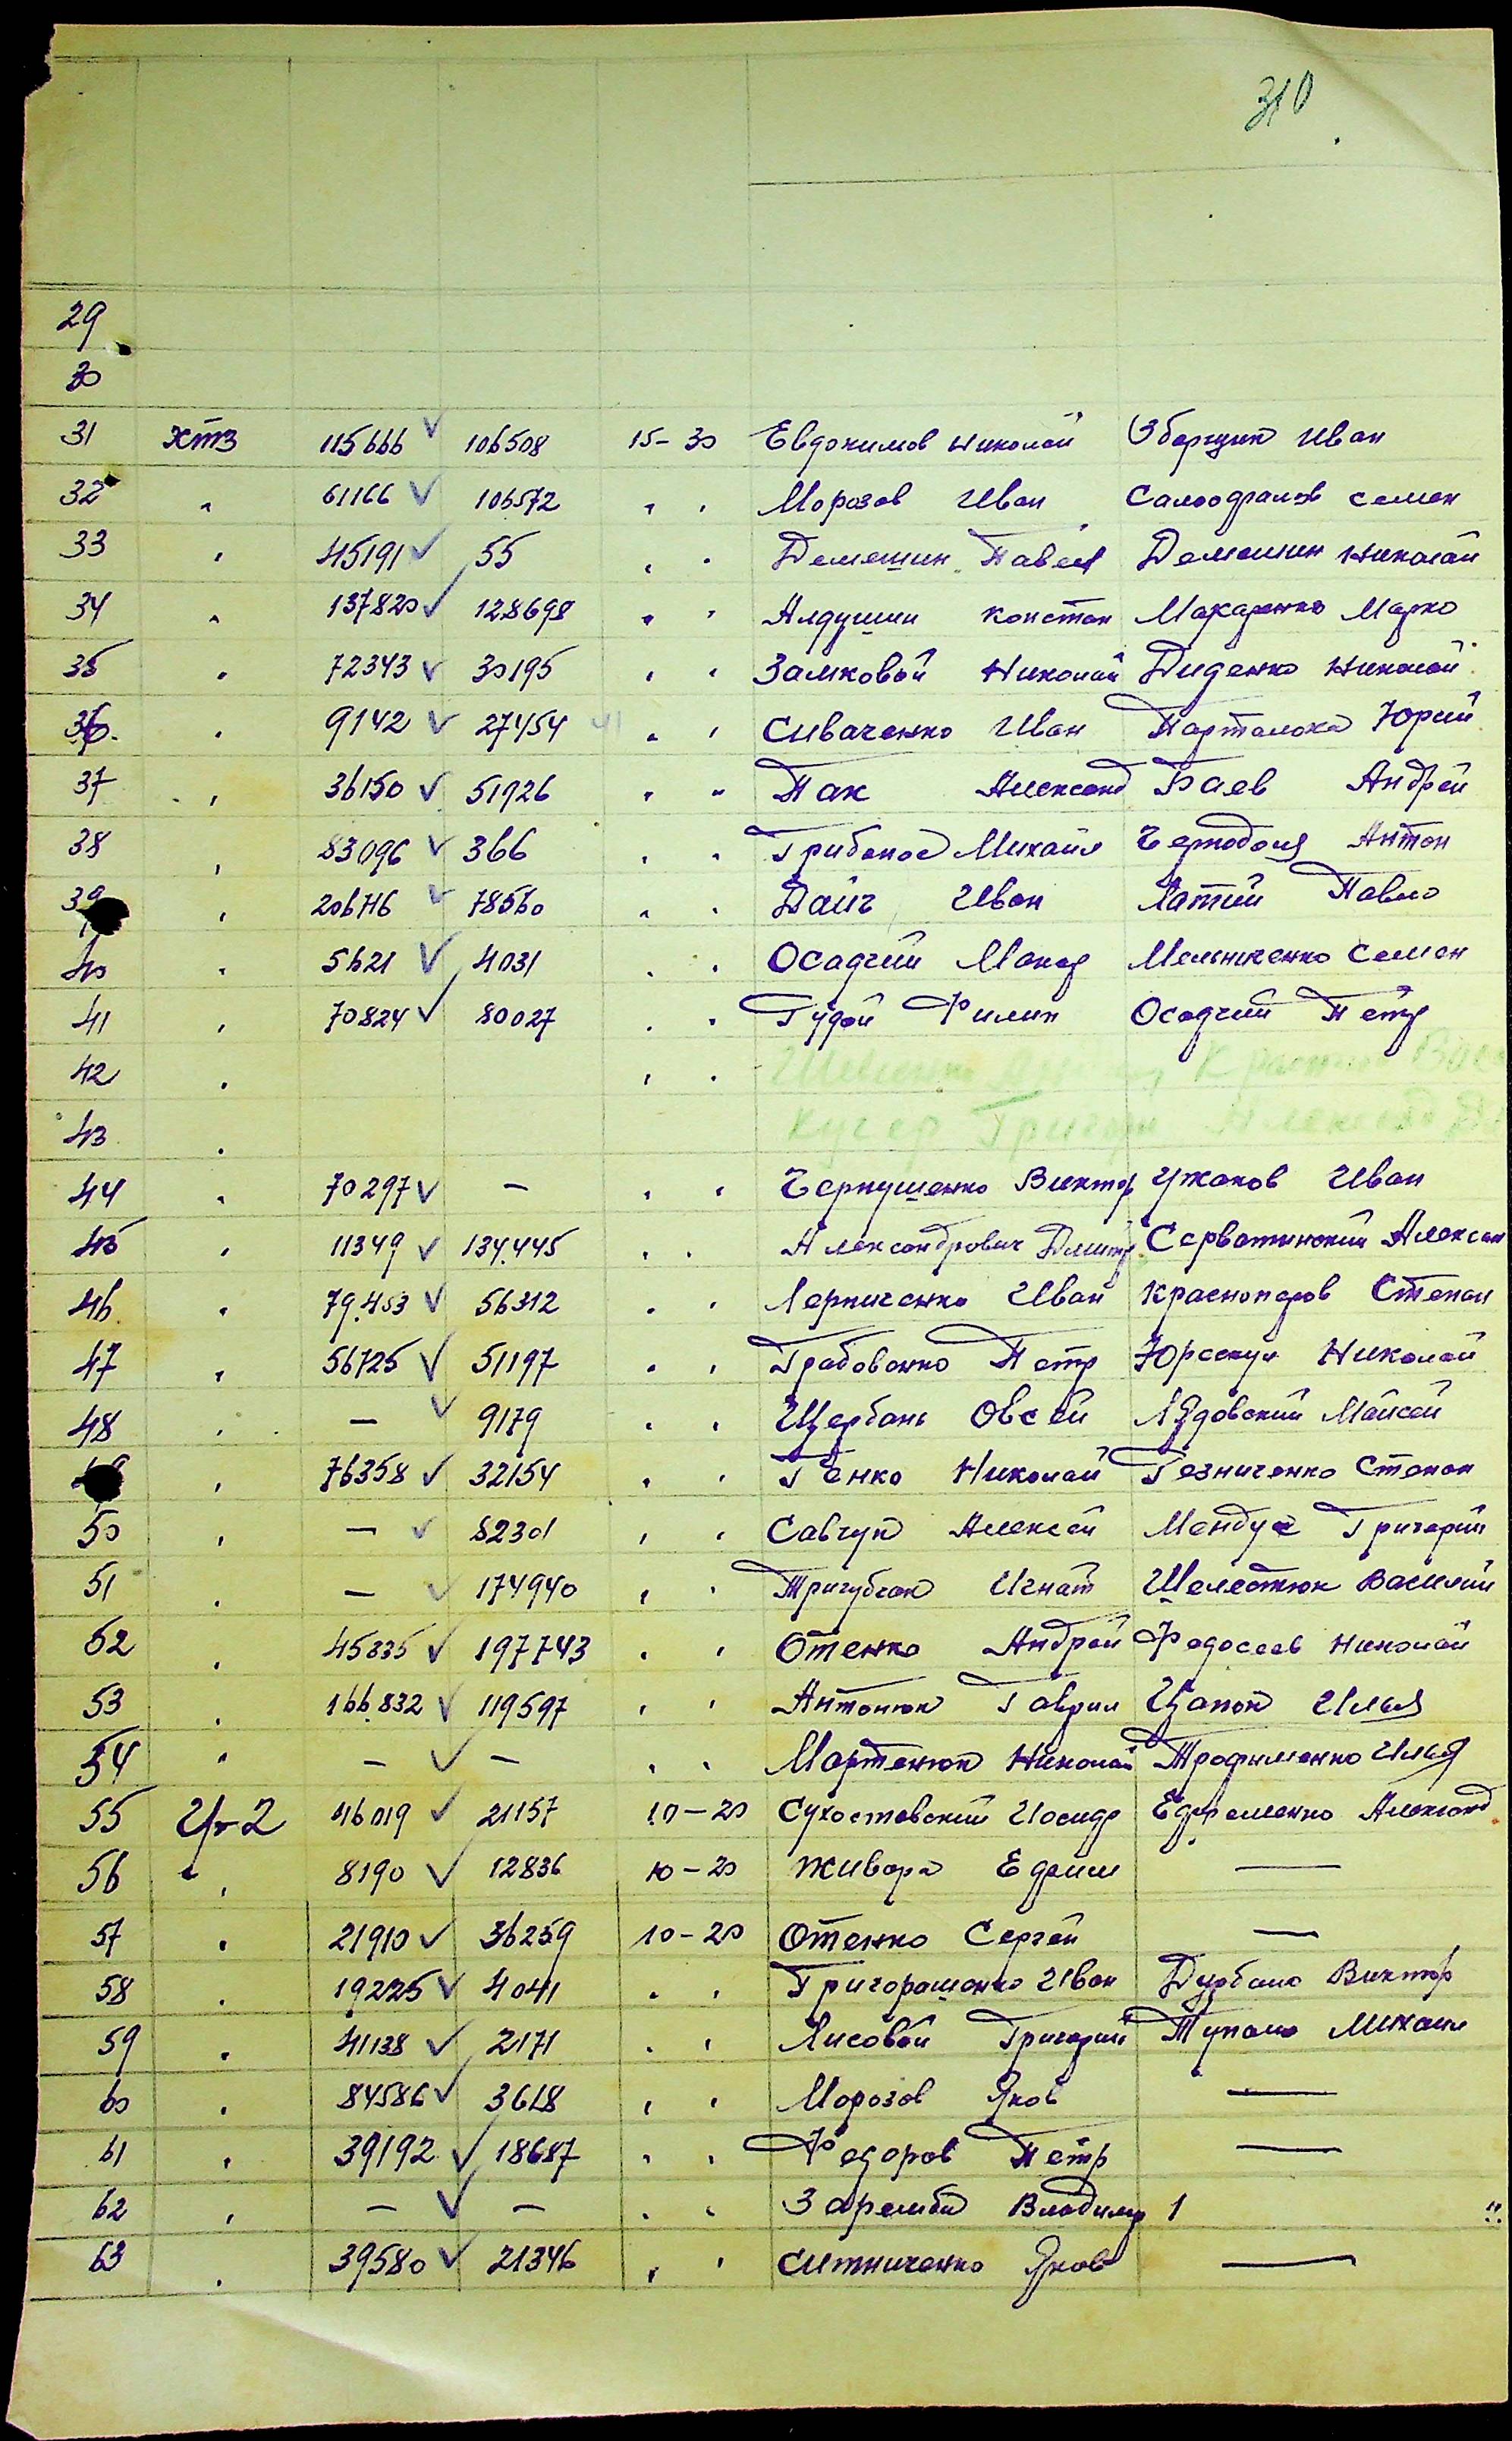 310
29
30
31 ХТЗ 115666 ✓ 106508 15-30 Евдокимов Николай Зборщик Иван
32 " 61166 ✓ 106572 " " Морозов Иван Самодралов Семен
33 " 45191 ✓ 55 " " Демешин Павел Демешин Николай
34 " 137820 ✓ 128698 " " Алдушин Констан Макаренко Марко
35 " 72343 ✓ 30195 " " Замковой Николай Диденко Николай
36. " 9142 ✓ 27454 41 " " Сиваченко Иван Парталока Юрий
37 " 36150 ✓ 51926 " " Пак Александ Баев Андрей
38 " 83096 ✓ 366 " " Грибонос Михаил Антон
39 " 206716 ✓ 78560 " " Дайч Иван Латий Павло
40 " 5621 ✓ 4031 " " Осадчий Макар Мельниченко Семен
41 " 70824 ✓ 80027 " " Гудой Филип Осадчий Петр
42 " " "
43 " Кучер Григори
44 " 70297 ✓ – " " Чернушенко Виктор Ужаков Иван
45 " 11349 ✓ 134.445 " " Александрович Дмитр Сарватинский Алексан
46 " 79.453 ✓ 56312 " " Лерниченко Иван Красноперов Степан
47 " 56725 ✓ 51197 " " Грабованко Петр Николай
48 " – ✓ 9179 " " Щербань Овсей Лядовский Мойсей
" 76358 ✓ 32154 " " Генко Николай Гезниченко Степан
50 " – ✓ 82301 " " Савчук Алексей Мандус Григорий
51 " – ✓ 174940 " " Тригубчак Игнат Шелестюк Василий
52 " 45835 ✓ 197743 " " Отенко Андрей Федосеев Николай
53 " 166.832 ✓ 119597 " " Антонюк Гаврил Цапок Илья
54 " – ✓ – " " Мартенюк Николай Трофименко Илья
55 У-2 46019 ✓ 21157 10-20 Сухоставский Иосиф Ефременко Александ
56 " 8190 ✓ 12836 10-20 Живора Ефрим —
57 " 21910 ✓ 36259 10-20 Отенко Сергей —
58 " 19225 ✓ 4041 " " Григоращенко Иван Дурбало Виктор
59 " 41138 ✓ 2171 " " Лисовой Григорий Тупало Михаил
60 " 84586 ✓ 3618 " " Морозов Яков —
61 " 39192 ✓ 18687 " " Федоров Петр —
62 " – ✓ – " " Заремба Владимир 1 "
63 " 39580 ✓ 21346 " " Ситниченко Яков —